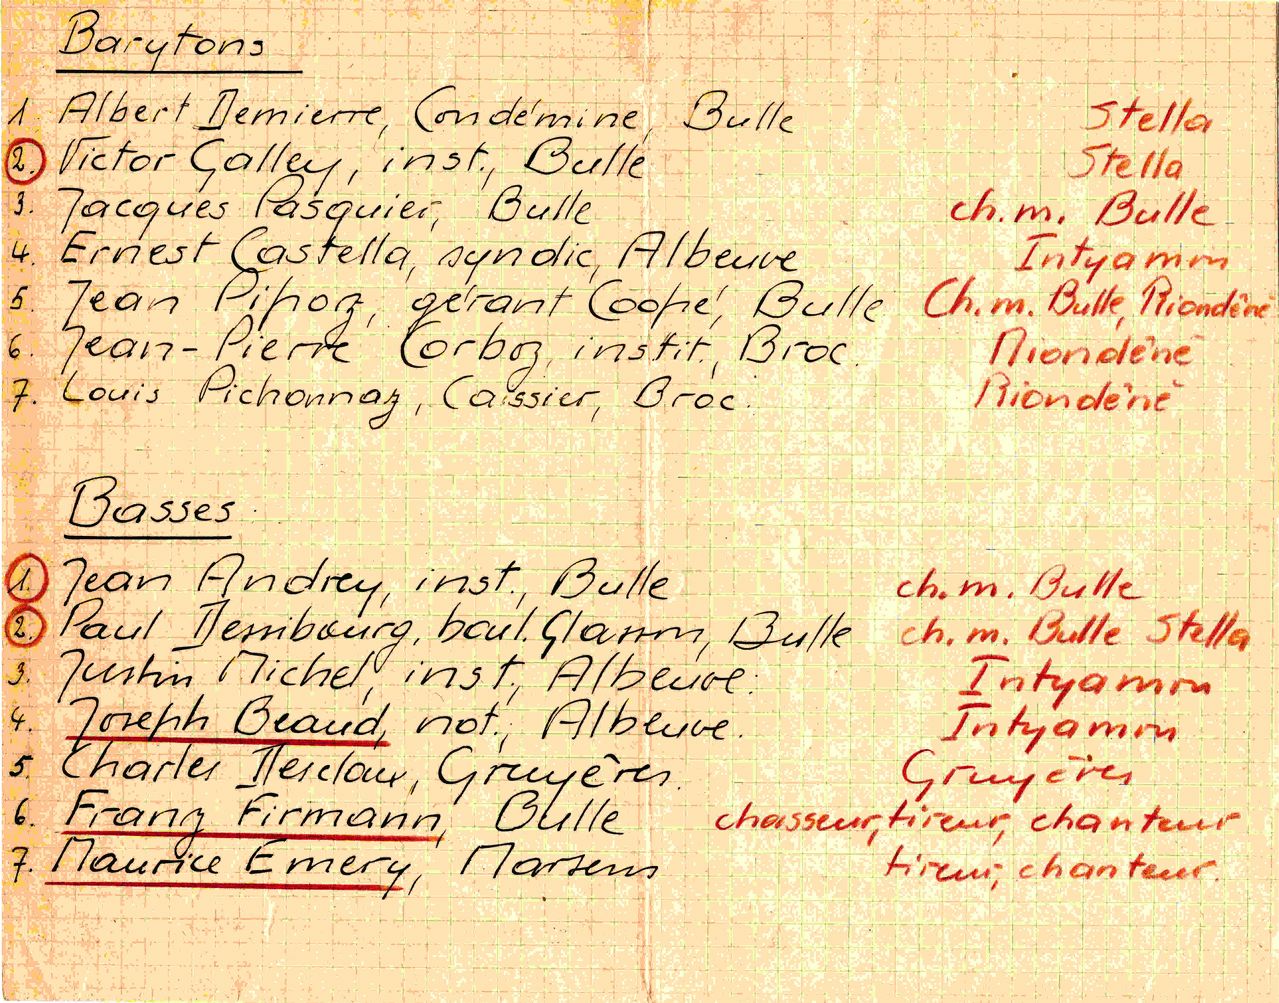 Barytons
1. Albert Demierre, Condémine, Bulle Stella
2. Victor Galley, inst., Bulle Stella
3. Jacques Pasquier, Bulle ch.m. Bulle
4. Ernest Castella, syndic, Albeuve Intyamon
5. Jean Pipoz, gérant Coopé, Bulle Ch.m. Bulle, Riondênè
6. Jean-Pierre Corboz, instit., Broc. Riondênè
7. Louis Pichonnaz, Caissier, Broc. Riondênè
Basses
1. Jean Andrey, inst., Bulle ch.m. Bulle
2. Paul Dessibourg, boul. Glasson, Bulle ch.m. Bulle Stella
3. Justin Michel, inst., Albeuve. Intyamon
4. Joseph Beaud, not., Albeuve. Intyamon
5. Charles Descloux, Gruyères. Gruyères
6. Franz Firmann, Bulle chasseur, tireur, chanteur
7. Maurice Emery, Marsens tireur, chanteur.